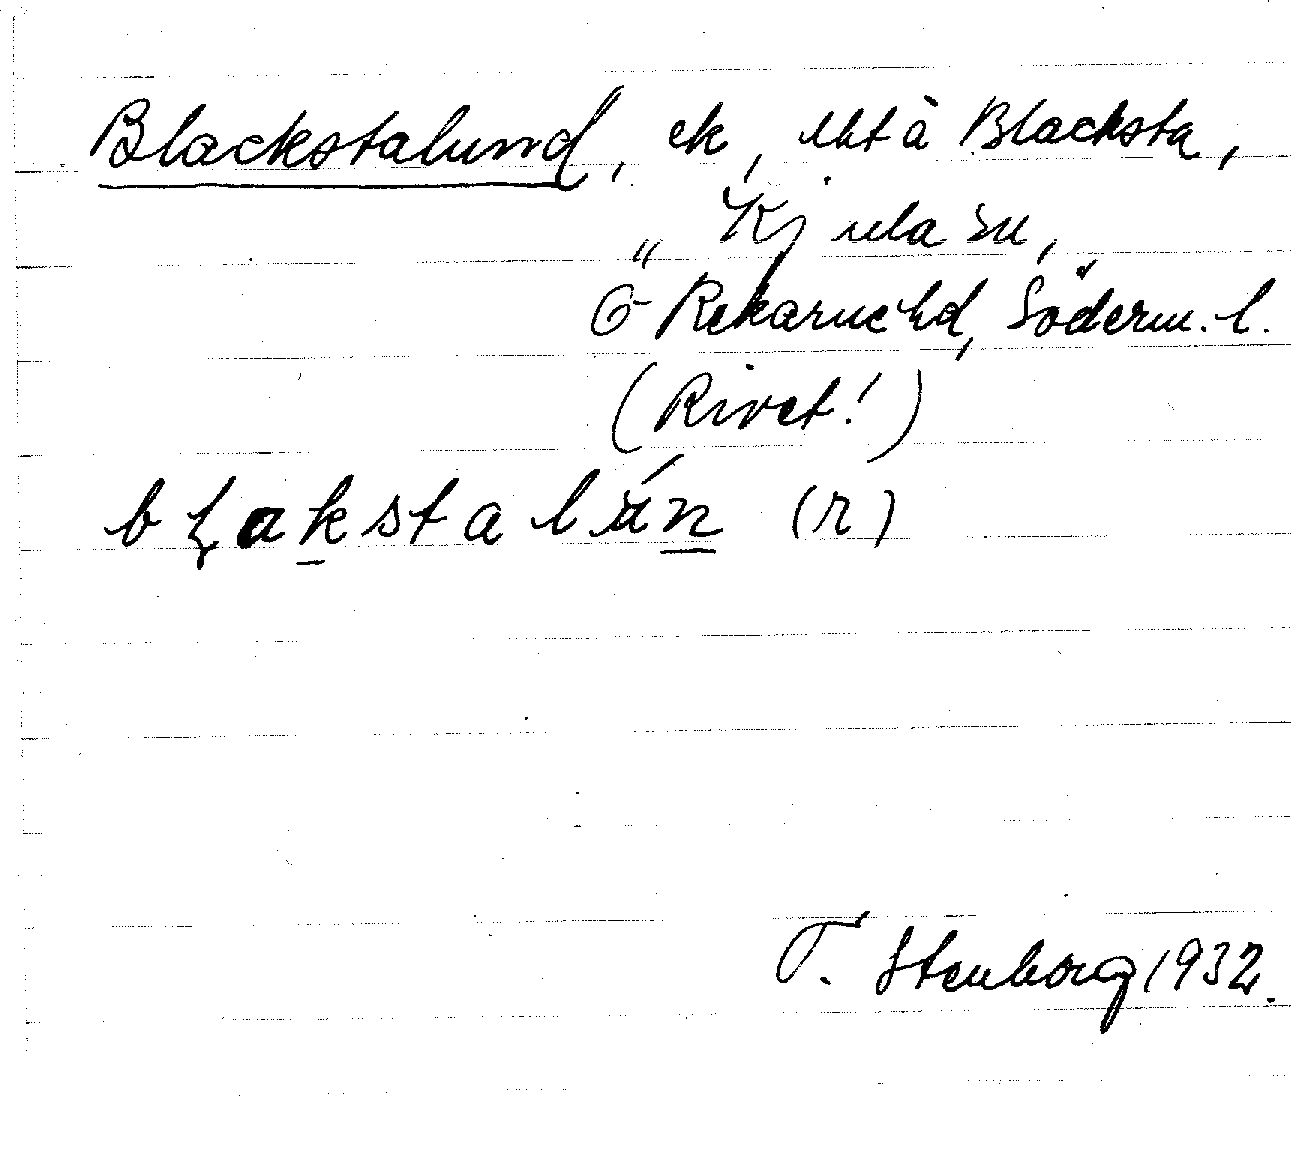 Blackstalund, ek, utt å Blacksta,
Kjula sn,
Ö Rekarne hd, Söderm. l.
(Rivet!)
blakstalún (r)
T. Stenborg 1932.